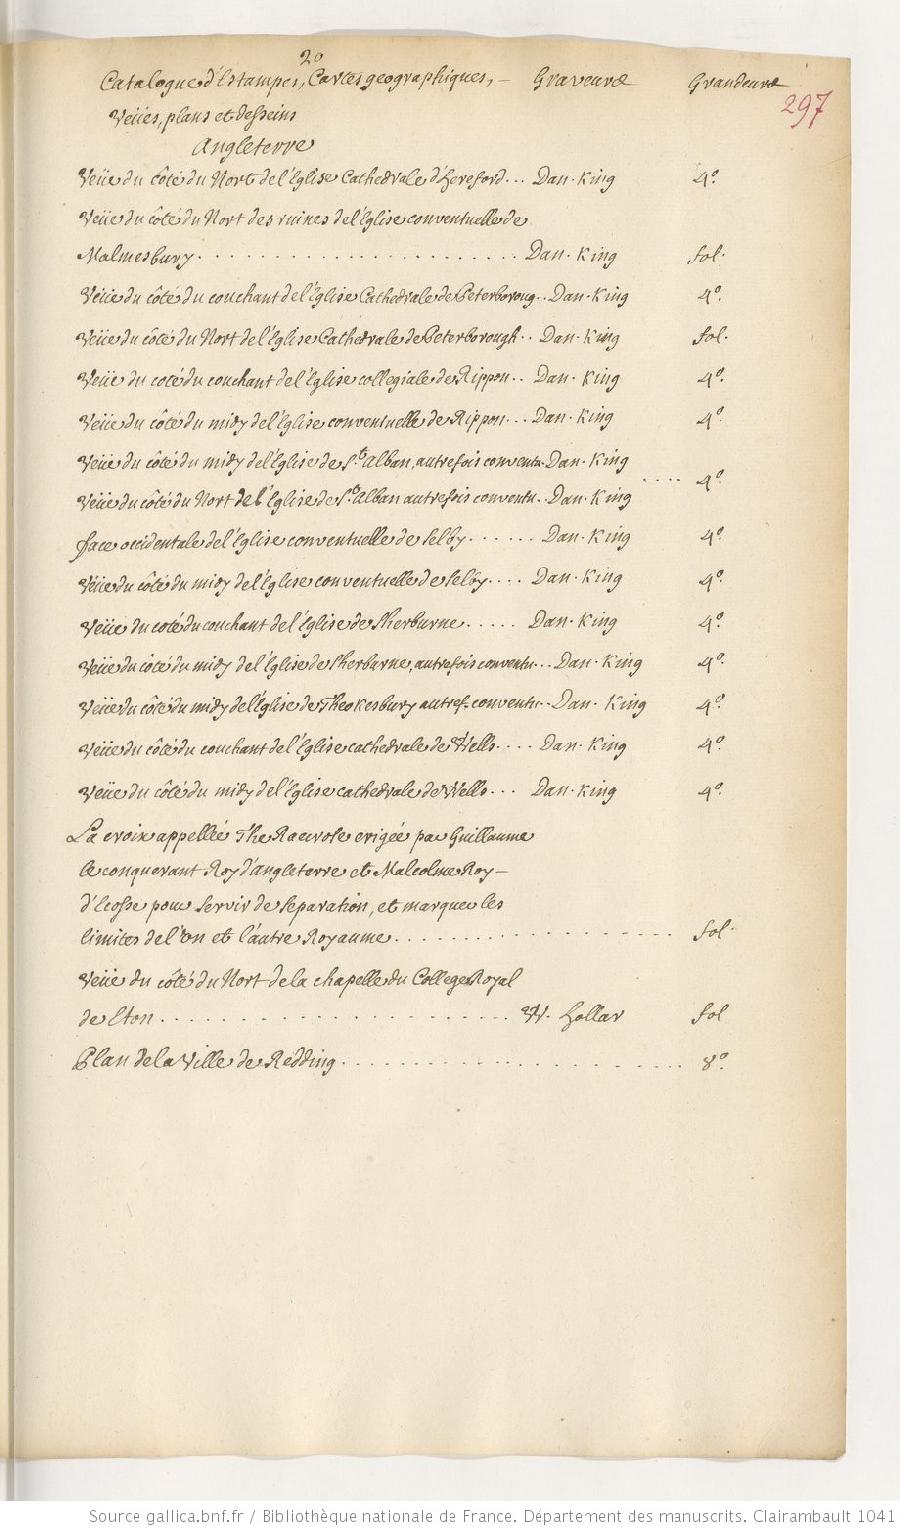 20
Catalogue d'Estampes, Cartes geographiques, — Graveurs Grandeurs
297
Veües, plans et desseins
Angleterre
Veüe du côté du Nort de l'Eglise Cathedrale d'Hereford... Dan. King 4.º
Veüe du côté du Nort des ruines de l'Eglise conventuelle de
Malmesbury. . . . . . . . . . . . . . . . . . . . . Dan. King fol.
Veüe du côté du couchant de l'Eglise Cathedrale de Peterboroug.. Dan. King 4.º
Veüe du côté du Nort de l'Eglise Cathedrale de Peterborough.. Dan. King fol.
Veüe du coté du couchant de l'Eglise collegiale de Rippon.. Dan. King 4.º
Veüe du côté du midy de l'Eglise conventuelle de Rippon... Dan. King 4.º
Veüe du côté du midy de l'Eglise de S.t Alban, autrefois conventu. Dan. King
.... 4.º
Veüe du côté du Nort de l'Eglise de S.t Alban autrefois conventu.. Dan. King
face occidentale de l'Eglise conventuelle de Selby...... Dan. King 4.º
Veüe du côté du midy de l'Eglise conventuelle de Selby.... Dan. King 4.º
Veüe du coté du couchant de l'Eglise de Sherburne..... Dan. King 4.º
Veüe du côté du midy de l'Eglise de Sherburne, autrefois conventu... Dan. King 4.º
Veüe du côté du midy de l'Eglise de Theokesbury autref. conventu.. Dan. King 4.º
Veüe du côté du couchant de l'Eglise cathedrale de Wells.... Dan. King 4.º
Veüe du côté du midy de l'Eglise cathedrale de Wells... Dan. King 4.º
La croix appellée The Raecrose erigée par Guillaume
le conquerant Roy d'angleterre et Malcolme Roy —
d'Ecosse pour servir de separation, et marquer les
limites de l'un et l'autre Royaume. . . . . . . . . . . . . . . . . fol.
Veüe du côté du Nort de la chapelle du College Royal
de Eton. . . . . . . . . . . . . . . . . . . . . . W. Hollar fol
Plan de la Ville de Redding. . . . . . . . . . . . . . . . . . . 8.º
Source gallica.bnf.fr / Bibliothèque nationale de France. Département des manuscrits. Clairambault 1041